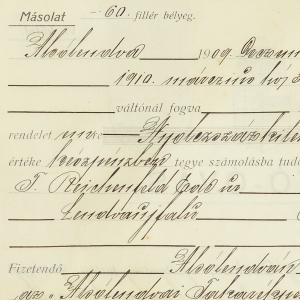 Másolat 60. fillér bélyeg.
Alsólendva 1909 Decem
1910. márczius hó 3
váltónál fogva
rendelet Nyolczszázkilen
értéke készpénzben tegye számolásba tud
T. Reichenfeld Ede úr
Lendvaujfalu
Fizetendő Alsólendván
az "Alsólendvai Takarékpén